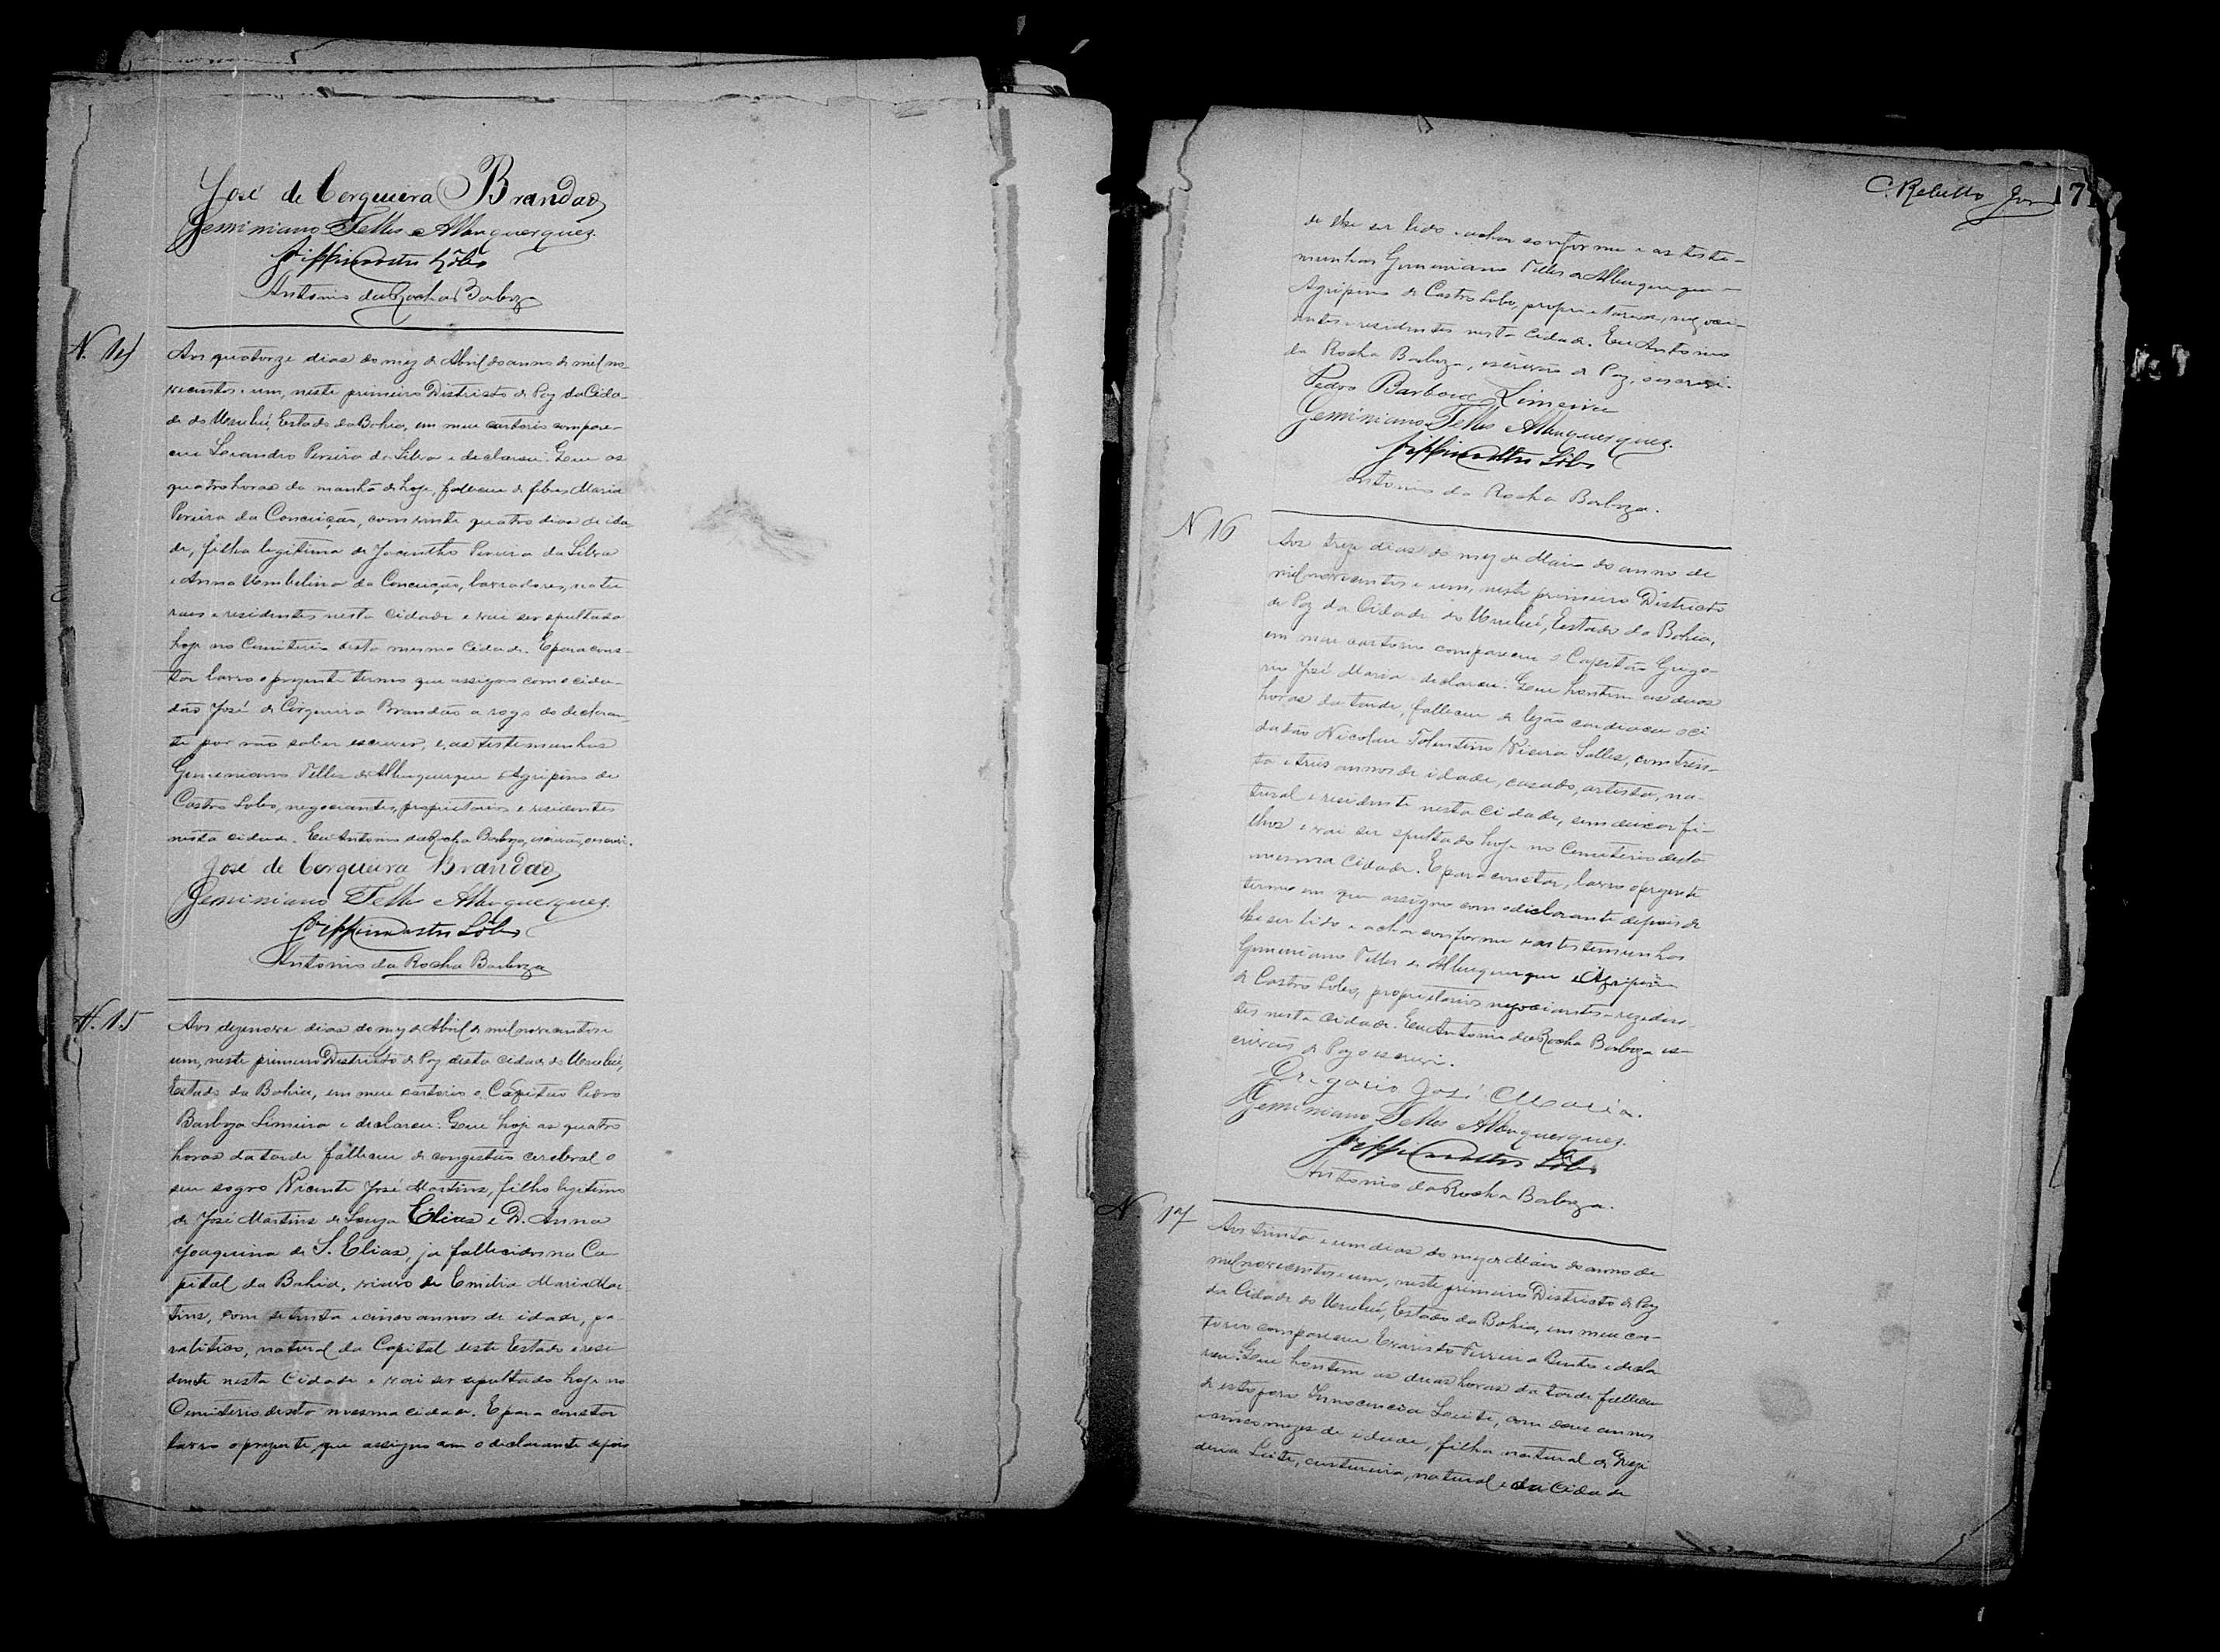 José de Cerqueira Brandão
Geminiano Telles Albuquerque
Antonio da Rocha Barboza
N. 14
Aos quatorze dias do mez de Abril do anno de mil no-
vecentos e um, neste primeiro Districto de Paz da Cida-
de do Urubú, Estado da Bahia, em meu cartorio compare-
ceu Leuandro Pereira da Silva e declarou: Que as
quatro horas da manhã de hoje, falleceu de febres Maria
Pereira da Conceição, com vinte quatro dias de ida-
de, filha legitima de Jacintho Pereira da Silva
e Anna Umbelina da Conceição, lavradores, natu
raes e residentes nesta cidade e vai ser sepultada
hoje no Cemiterio desta mesma Cidade. E para cons-
tar lavro o prezente termo que assigno com o cida-
dão José de Cerqueira Brandão a rogo do declaran-
te por não saber escrever, e as testemunhas
Geminiano Telles de Albuquerque e Agripino de
Castro Lobo, negociantes, proprietarios e residentes
nesta cidade. Eu Antonio da Rocha Barboza, escrivão, o escrevi.
José de Cerqueira Brandão
Geminiano Telles Albuquerque
Antonio da Rocha Barboza
N. 15
Aos dezenove dias do mez de Abril de mil novecentos e
um, neste primeiro Districto de Paz desta cidade do Urubú,
Estado da Bahia, em meu cartorio o Capitão Pedro
Barboza Limeira e declarou: Que hoje as quatro
horas da tarde falleceu de congestão cerebral o
seu sogro Vicente José Martins, filho legitimo
de José Martins de Souza Elias e D. Anna
Joaquina de S. Elias, ja fallecidos na Ca-
pital da Bahia, viuvo de Emilia Maria Mar
tins, com setenta e cinco annos de idade, pa-
ralitico, natural da Capital deste Estado e resi
dente nesta Cidade e vai ser sepultado hoje no
Cemiterio desta mesma cidade. E para constar
lavro o prezente, que assigno com o declarante depois
C. Rebello Jor 171
de lhe ser lido e achar conforme e as teste-
munhas Geminiano Telles de Albuquerque e
Agripino de Castro Lobo, proprietarios, negoci-
antes e residentes nesta Cidade. Eu Antonio
da Rocha Barboza, escrivão de Paz, o escrevi.
Pedro Barboza Limeira
Geminiano Telles Albuquerque
Antonio da Rocha Barboza.
N 16
Aos treze dias do mez de Maio do anno de
mil novecentos e um, neste primeiro Districto
de Paz da Cidade do Urubú, Estado da Bahia,
em meu cartorio compareceu o Capitão Grego-
rio José Maria e declarou: Que hontem as duas
horas da tarde, falleceu de lezão cardiaca o ci
dadão Nicolau Tolentino Vieira Salles, com trin-
ta e tres annos de idade, cazado, artista, na-
tural e residente nesta Cidade, sem deixar fi-
lhos e vai ser sepultado hoje no Cemiterio desta
mesma Cidade. E para constar, lavro o prezente
termo em que assigno com o declarante depois de
lhe ser lido e achar conforme e as testemunhas
Geminiano Telles de Albuquerque e Agripino
de Castro Lobo, proprietarios negociantes e reziden-
tes nesta cidade. Eu Antonio da Rocha Barboza es-
crivão de Paz o escrevi.
Gregorio José Maria.
Geminiano Telles Albuquerque.
Antonio da Rocha Barboza.
N. 17
Aos trinta e um dias do mez de Maio do anno de
mil novecentos e um, neste primeiro Districto de Paz
da Cidade do Urubú, Estado da Bahia, em meu car-
torio compareceu Evaristo Ferreira Bento e decla
rou: Que hontem as duas horas da tarde falleceu
de estopora Innocencia Leite, com dous annos
e cinco mezes de idade, filha natural de
Leite, costureira, natural e da Cidade